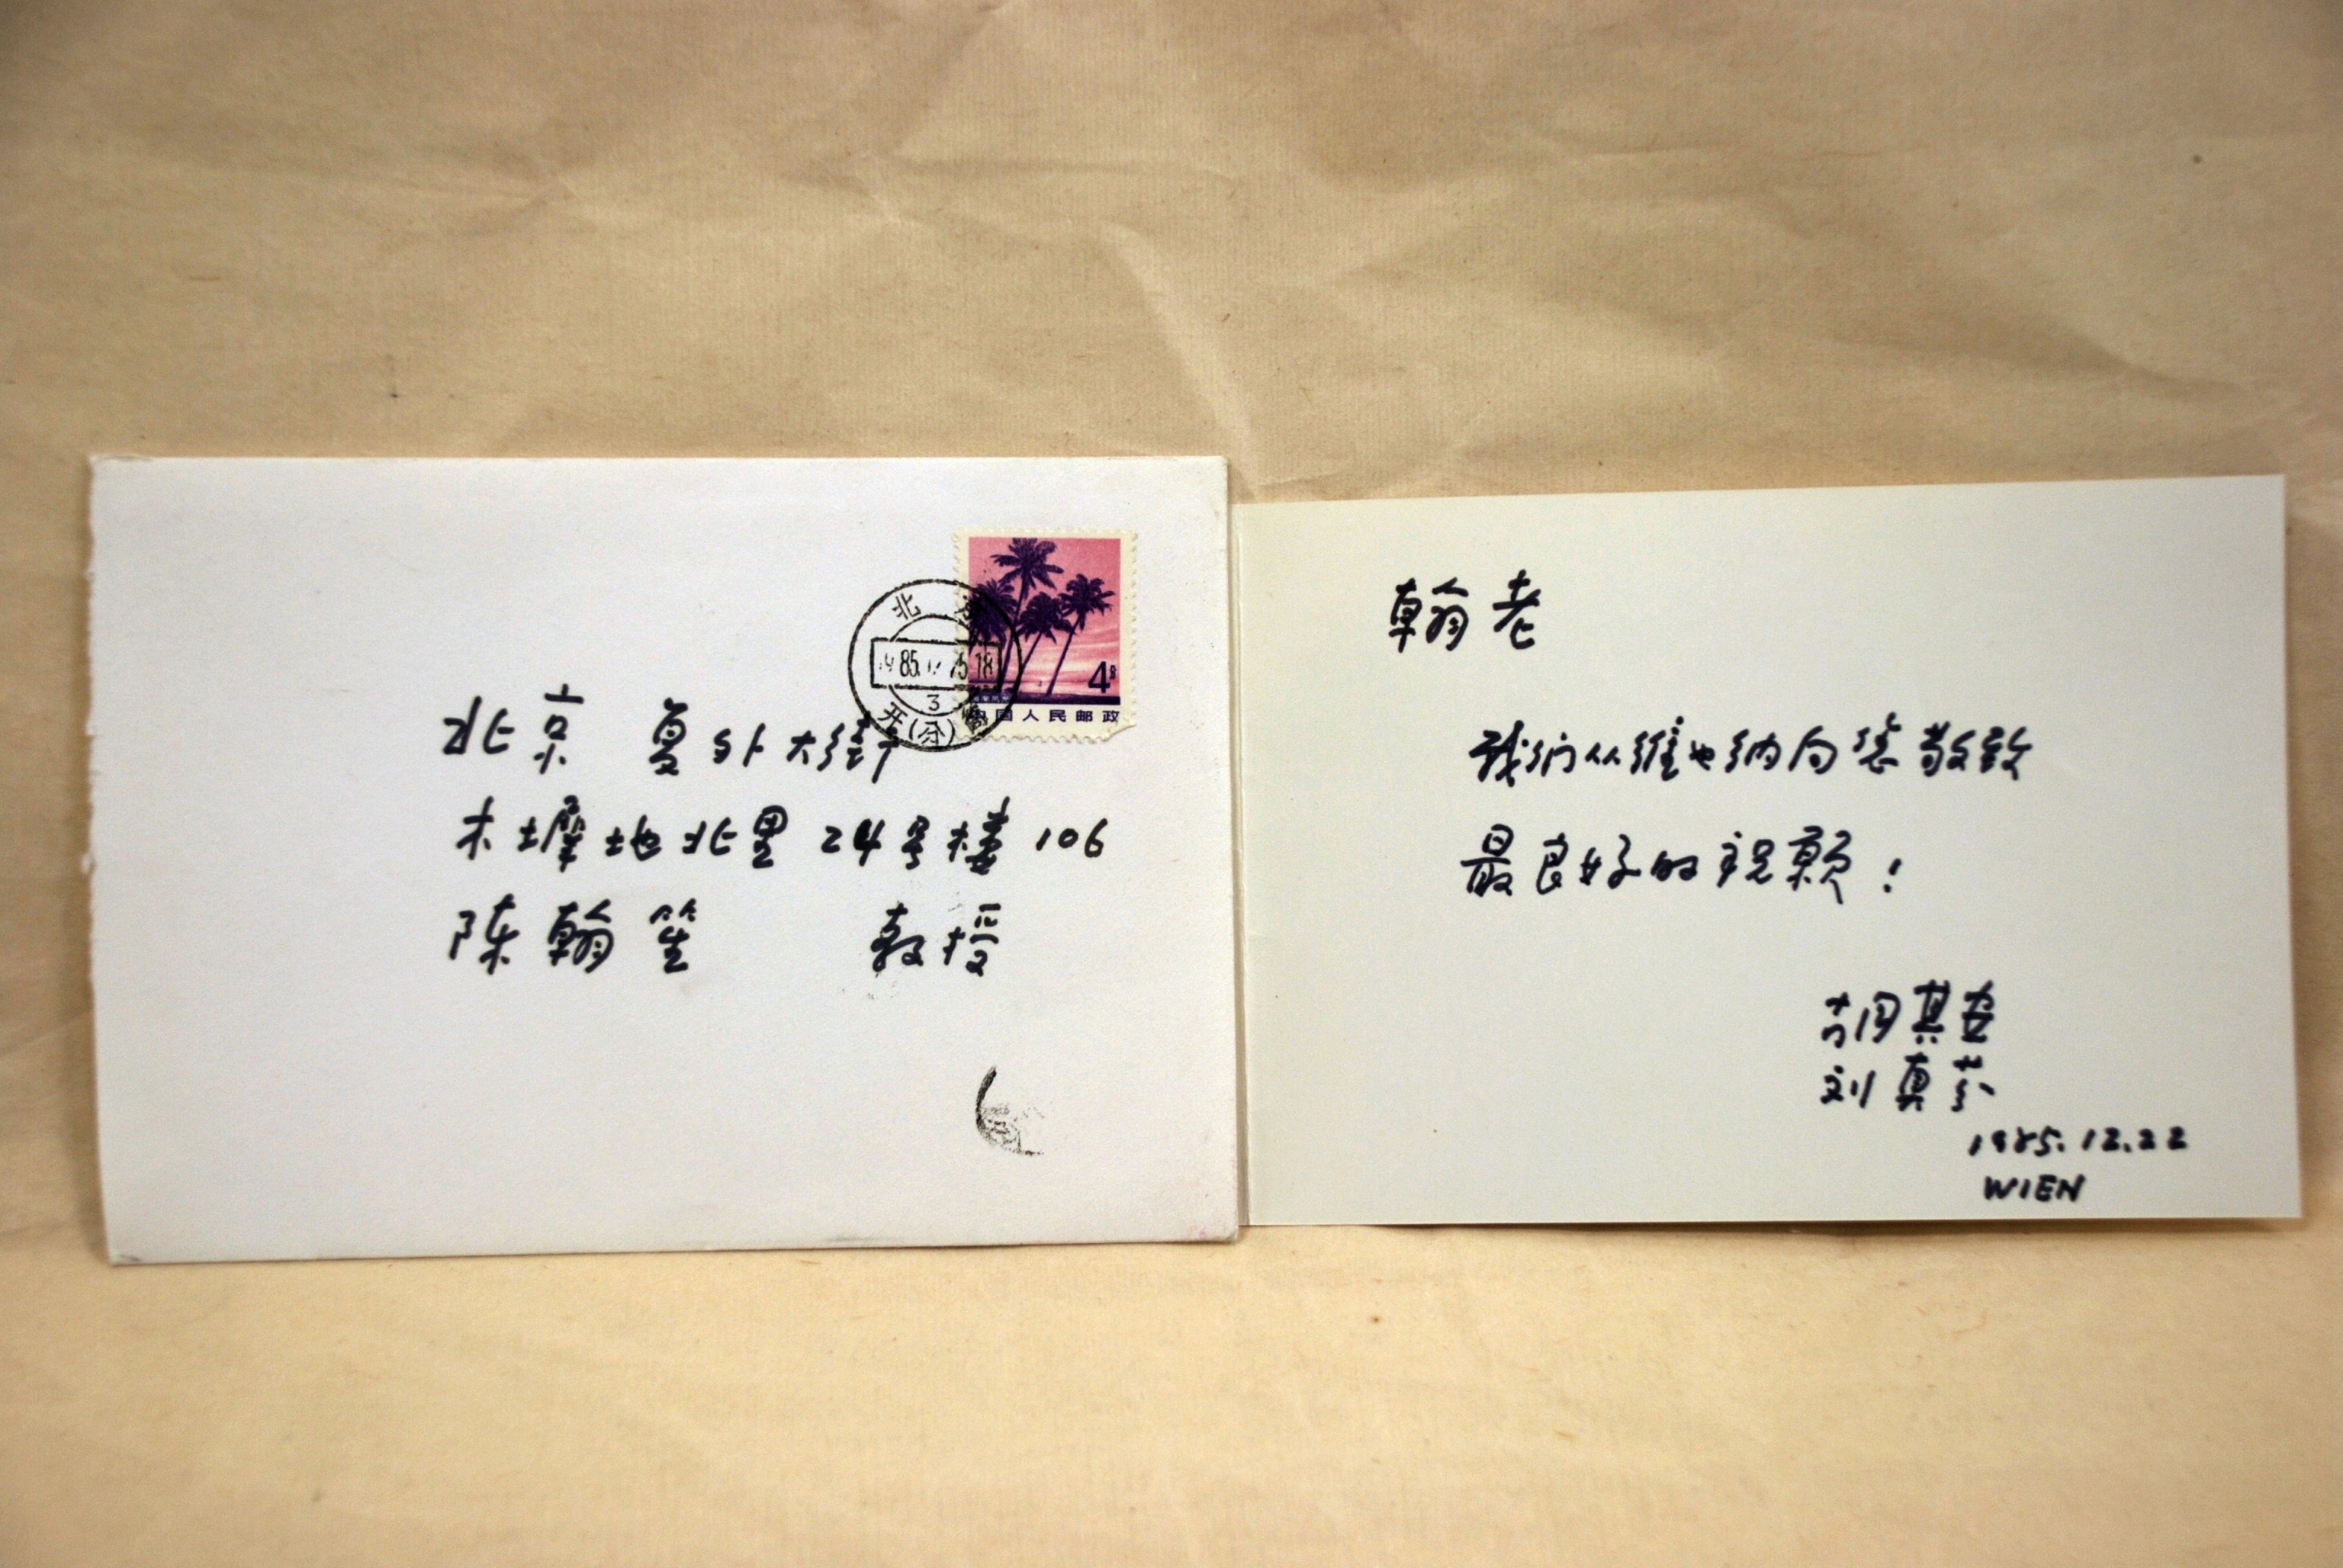 北京
85. 18
3
开(分)
4分
中国人民邮政
北京 复外大街
木墀地北里 24号楼 106
陈翰笙 教授
翰老
我们从维也纳向您敬致
最良好的祝愿!
胡其安
刘真芬
1985.12.22
WIEN